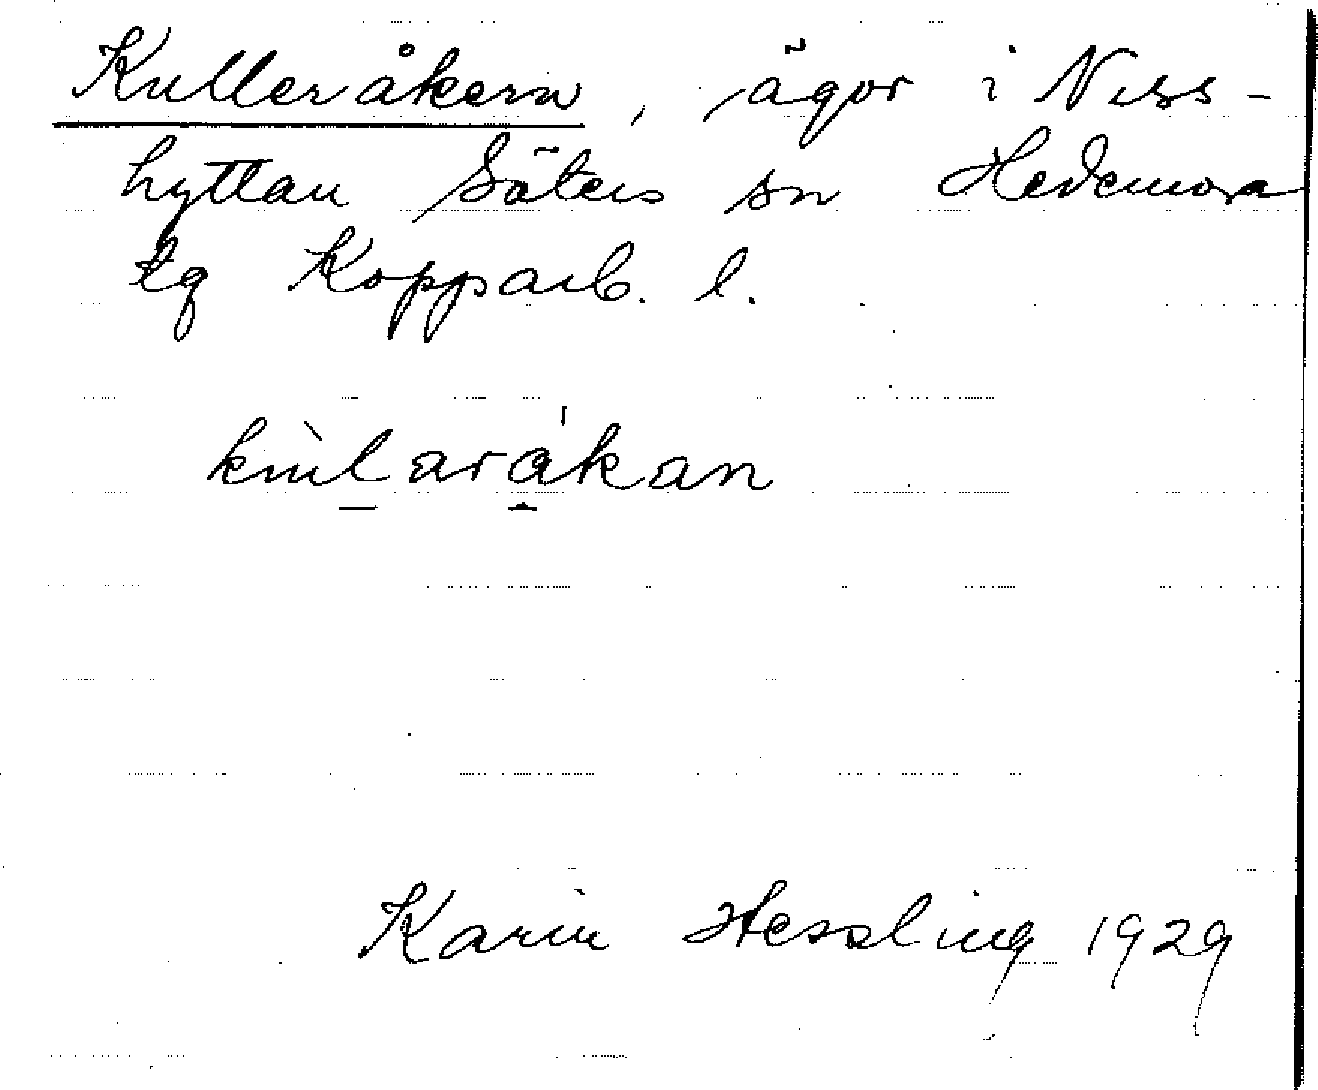 Kulleråkern, ägor i Niss-
hyttan Säters sn Hedemora
tg Kopparb. l.
kùlaråkan
Karin Hessling 1929